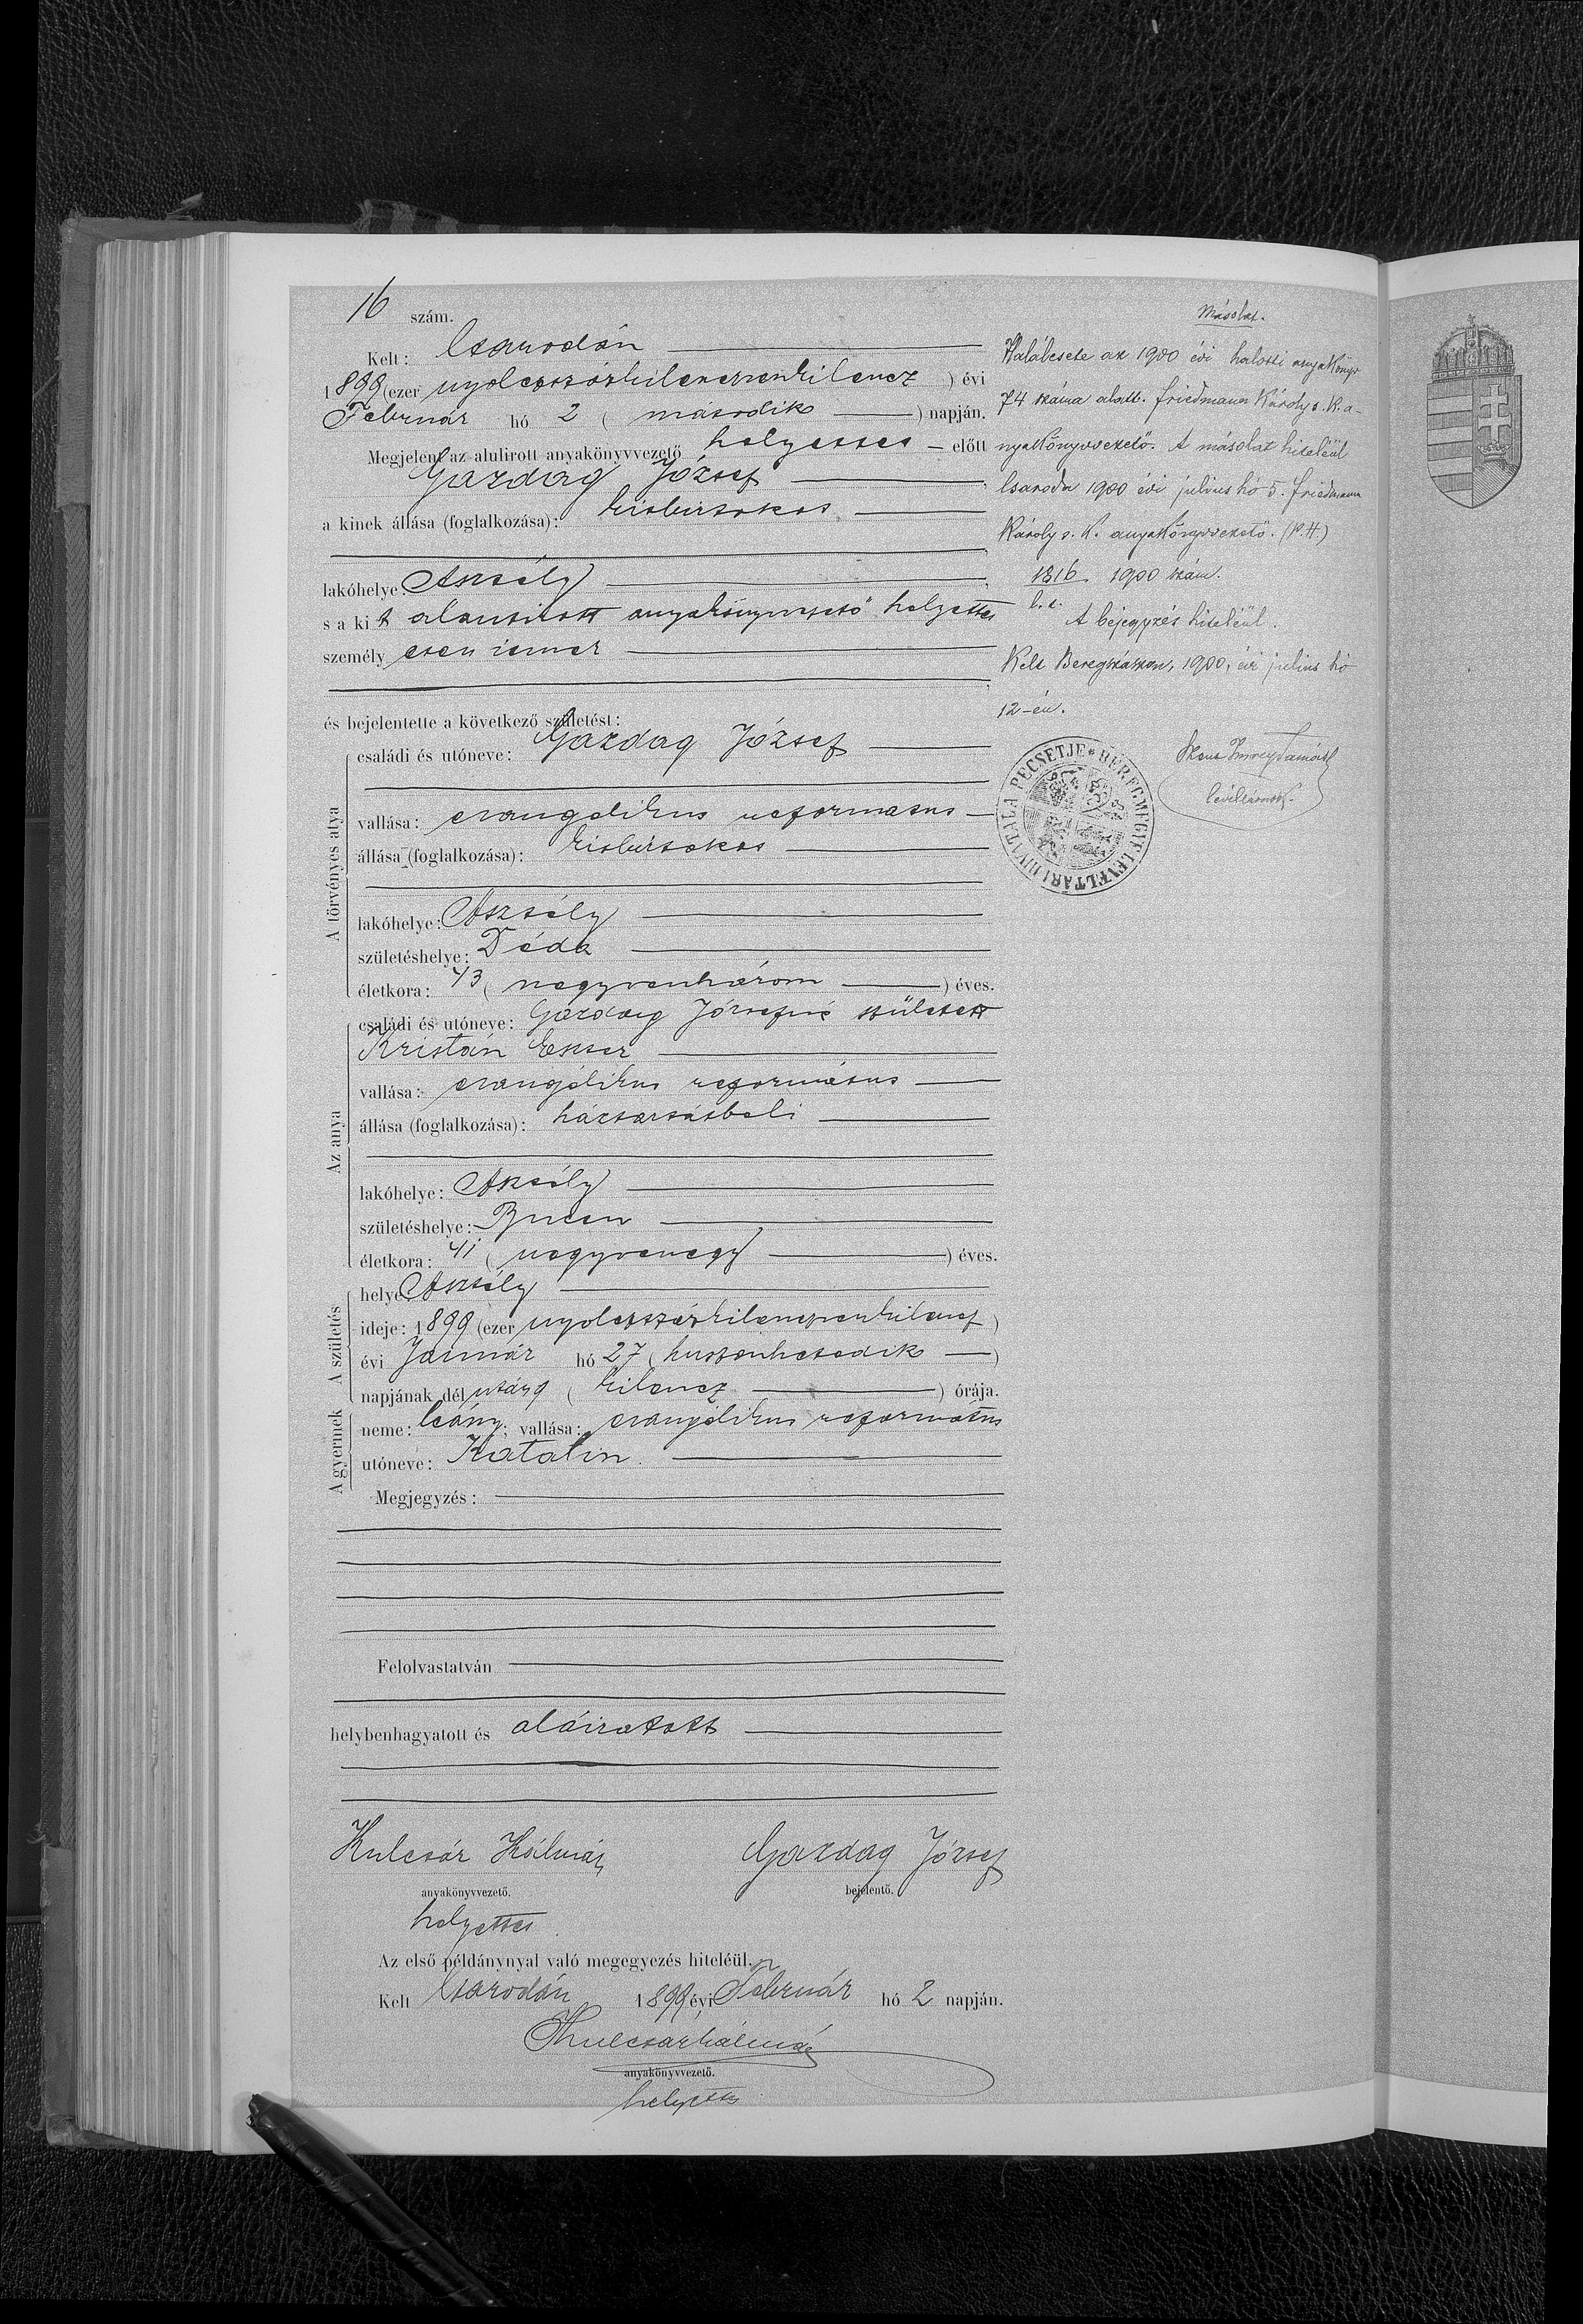 16 szám.
Kelt: Csarodán
1899 (ezer nyolczszázkilenczvenkilencz ) évi
Február hó 2 ( második ) napján.
Megjelent az alulirott anyakönyvvezető helyettes előtt
Gazdag József
a kinek állása (foglalkozása): kisbirtokos
lakóhelye: Asztély
s a kit alantirott anyakönyvvezető helyettes
személyesen ismer
és bejelentette a következő születést:
A törvényes atya
családi és utóneve: Gazdag József
vallása: evangelikus reformatus
állása (foglalkozása): kisbirtokos
lakóhelye: Asztély
születéshelye: Déda
életkora: 43 ( negyvenhárom ) éves.
Az anya
családi és utóneve: Gazdag Józsefné született
Kristán Eszter
vallása: evangélikus református
állása (foglalkozása): háztartásbeli
lakóhelye: Asztély
születéshelye: Bucsu
életkora: 41 ( negyvenegy ) éves.
A születés
helye: Asztély
ideje: 1899 (ezer nyolczszázkilenczvenkilencz )
évi Január hó 27 ( huszonhetedik )
napjának délután 9 ( kilencz ) órája.
A gyermek
neme: leány; vallása: evangélikus református
utóneve: Katalin.
Megjegyzés:
Felolvastatván
helybenhagyatott és aláiratott
Kulcsár Kálmán Gazdag József
anyakönyvvezető. bejelentő.
helyettes
Az első példánynyal való megegyezés hiteléül.
Kelt Csarodán 1899 évi Február hó 2 napján.
Kulcsár Kálmán
anyakönyvvezető.
helyettes
Másolat.
Halálesete az 1900 évi halotti anyakönyv
74 száma alatt. Friedmann Károly s. k. a-
nyakönyvvezető. A másolat hiteléül
Csaroda 1900 évi julius hó 5. Friedmann
Károly s. k. anyakönyvvezető. (P.H.)
1816 1900 szám.
A bejegyzés hiteléül.
Kelt Beregszászon, 1900, évi julius hó
12-én.
levéltárnok.
BEREGMEGYE LEVÉLTÁRI HIVATALA PECSÉTJE